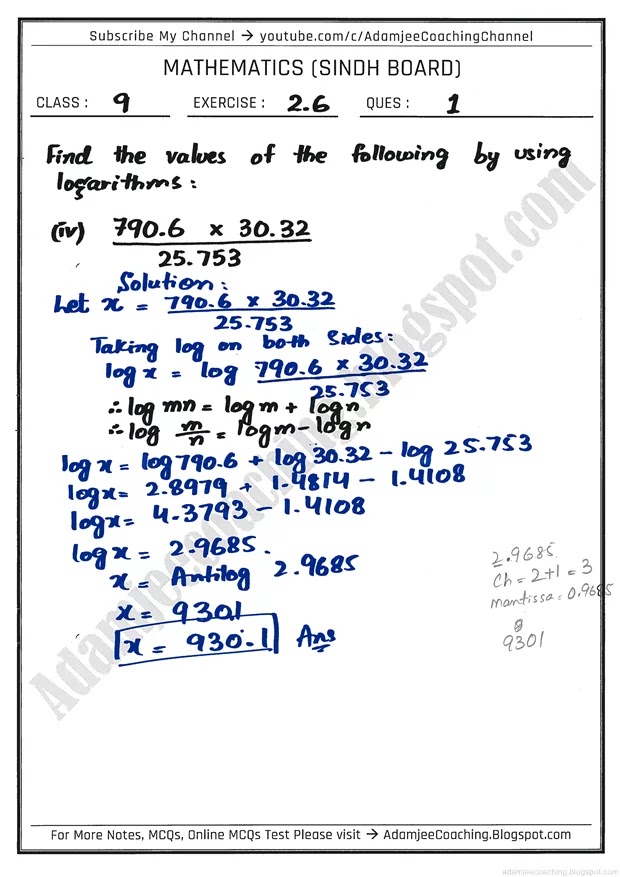 Subscribe My Channel → youtube.com/c/AdamjeeCoachingChannel
MATHEMATICS (SINDH BOARD)
CLASS : 9 EXERCISE : 2.6 QUES : 1
Find the values of the following by using
logarithms:
(iv) 790.6 x 30.32
25.753
Solution:
Let x = 790.6 x 30.32
25.753
Taking log on both sides:
log x = log 790.6 x 30.32
25.753
∴ log mn = log m + log n
∴ log m/n = log m - log n
log x = log 790.6 + log 30.32 - log 25.753
log x = 2.8979 + 1.4814 - 1.4108
log x = 4.3793 - 1.4108
log x = 2.9685.
x = Antilog 2.9685
x = 9301
x = 930.1 Ans
2.9685
Ch = 2+1 = 3
mantissa = 0.9685
9301
Adamjeecoaching.blogspot.com
For More Notes, MCQs, Online MCQs Test Please visit → AdamjeeCoaching.Blogspot.com
adamjeecoaching.blogspot.com